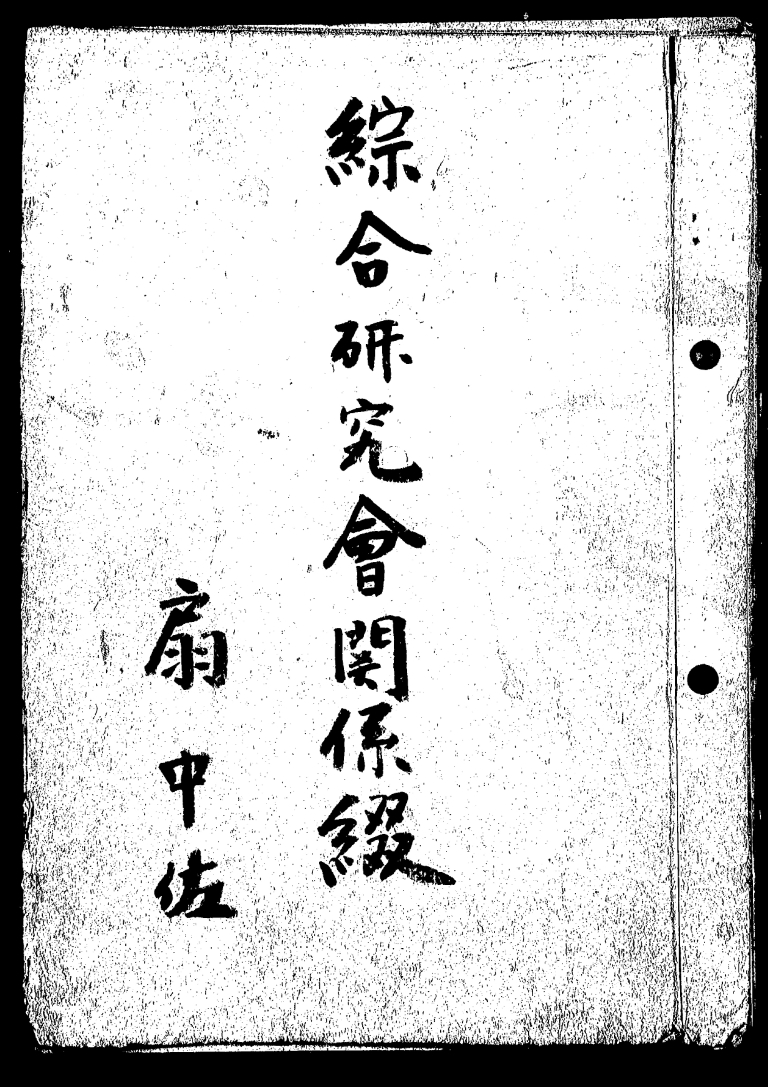 綜合研究會関係綴
扇中佐